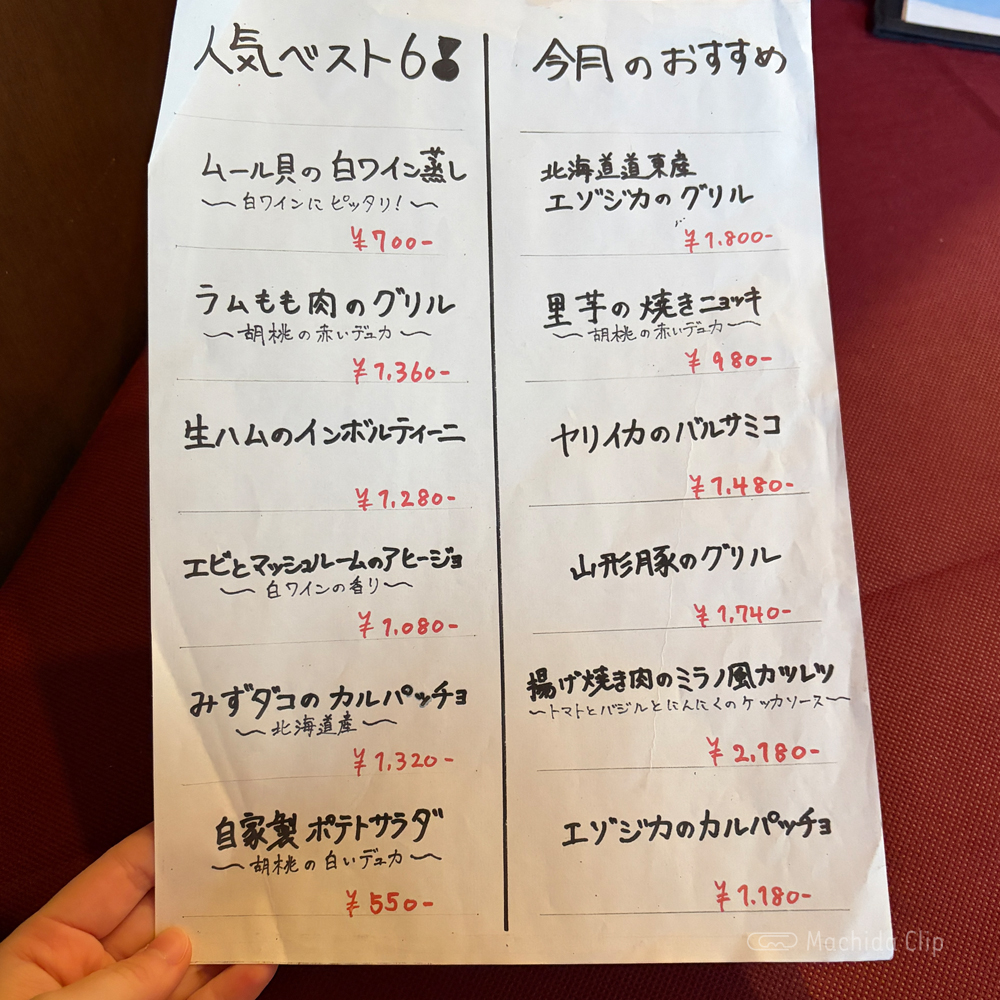 人気ベスト6!
ムール貝の白ワイン蒸し
〜白ワインにピッタリ!〜
¥700-
ラムもも肉のグリル
〜胡桃の赤いデュカ〜
¥1,360-
生ハムのインボルティーニ
¥1,280-
エビとマッシュルームのアヒージョ
〜白ワインの香り〜
¥1,080-
みずダコのカルパッチョ
〜北海道産〜
¥1,320-
自家製ポテトサラダ
〜胡桃の白いデュカ〜
¥550-
今月のおすすめ
北海道道東産
エゾジカのグリル
¥1,800-
里芋の焼きニョッキ
〜胡桃の赤いデュカ〜
¥980-
ヤリイカのバルサミコ
¥1,480-
山形豚のグリル
¥1,740-
揚げ焼き肉のミラノ風カツレツ
〜トマトとバジルとにんにくのケッカソース〜
¥2,180-
エゾジカのカルパッチョ
¥1,180-
Machida Clip